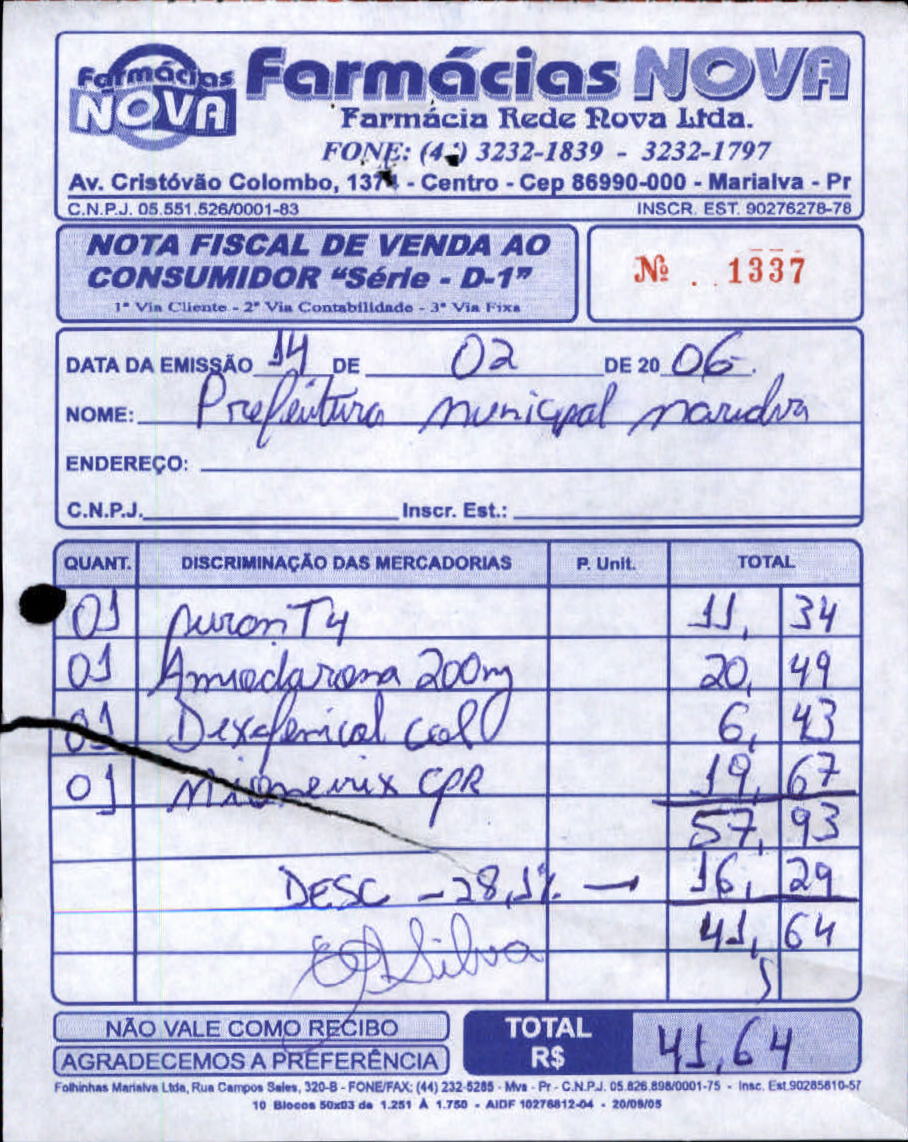 Farmácias NOVA
Farmácias NOVA
Farmácia Rede Nova Ltda.
FONE: (4 ) 3232-1839 - 3232-1797
Av. Cristóvão Colombo, 1374 - Centro - Cep 86990-000 - Marialva - Pr
C.N.P.J. 05.551.526/0001-83 INSCR. EST. 90276278-78
NOTA FISCAL DE VENDA AO
CONSUMIDOR "Série - D-1"
1ª Via Cliente - 2ª Via Contabilidade - 3ª Via Fixa
Nº 1337
DATA DA EMISSÃO 14 DE 02 DE 20 06
NOME: Prefeitura municipal
ENDEREÇO:
C.N.P.J. Inscr. Est.:
QUANT. DISCRIMINAÇÃO DAS MERCADORIAS P. Unit. TOTAL
01 puran T4 11, 34
01 Amiodarona 200m 20, 49
01 Dexafenicol Col 6, 43
01 CPR 19, 67
57, 93
DESC - 28,1% → 16, 29
41, 64
Silva
NÃO VALE COMO RECIBO
AGRADECEMOS A PREFERÊNCIA
TOTAL R$ 41,64
Folhinhas Marialva Ltda, Rua Campos Sales, 320-B - FONE/FAX: (44) 232-5285 - Mva - Pr - C.N.P.J. 05.826.898/0001-75 - Insc. Est.90285610-57
10 Blocos 50x03 de 1.251 À 1.750 - AIDF 10276812-04 - 20/09/05